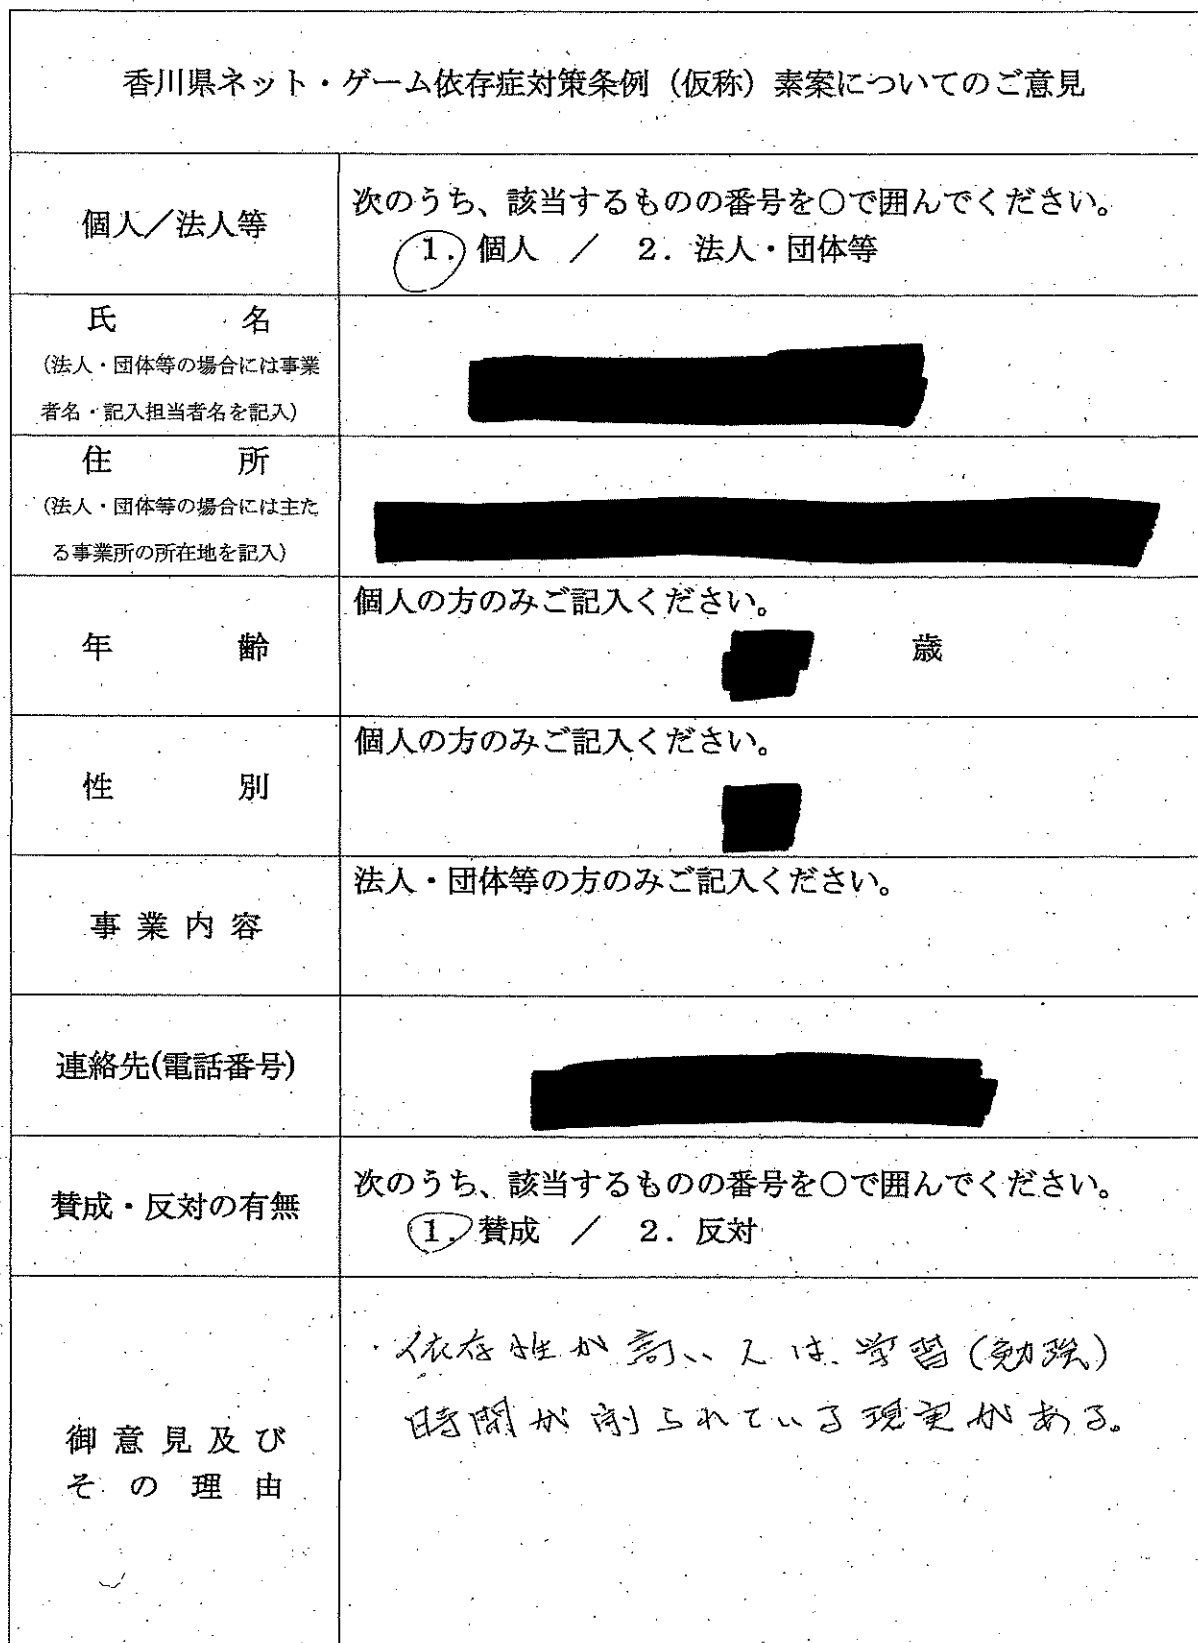 香川県ネット・ゲーム依存症対策条例（仮称）素案についてのご意見
個人／法人等
次のうち、該当するものの番号を○で囲んでください。
1．個人 ／ 2．法人・団体等
氏 名
（法人・団体等の場合には事業
者名・記入担当者名を記入）
住 所
（法人・団体等の場合には主た
る事業所の所在地を記入）
年 齢
個人の方のみご記入ください。
歳
性 別
個人の方のみご記入ください。
事業内容
法人・団体等の方のみご記入ください。
連絡先(電話番号)
賛成・反対の有無
次のうち、該当するものの番号を○で囲んでください。
1．賛成 ／ 2．反対
御意見及び
その理由
・依存性が高い人は、学習（勉強）
時間が削られている現実がある。